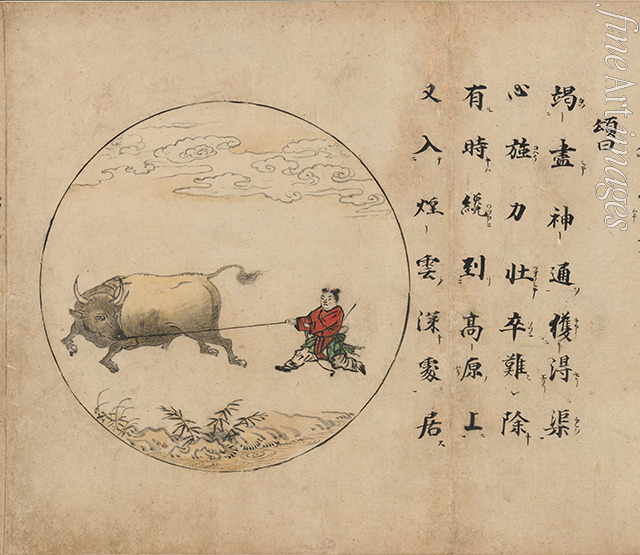 頌曰
竭盡神通獲得渠
心強力壯卒難除
有時纔到高原上
又入煙雲深處居
fineArtimages